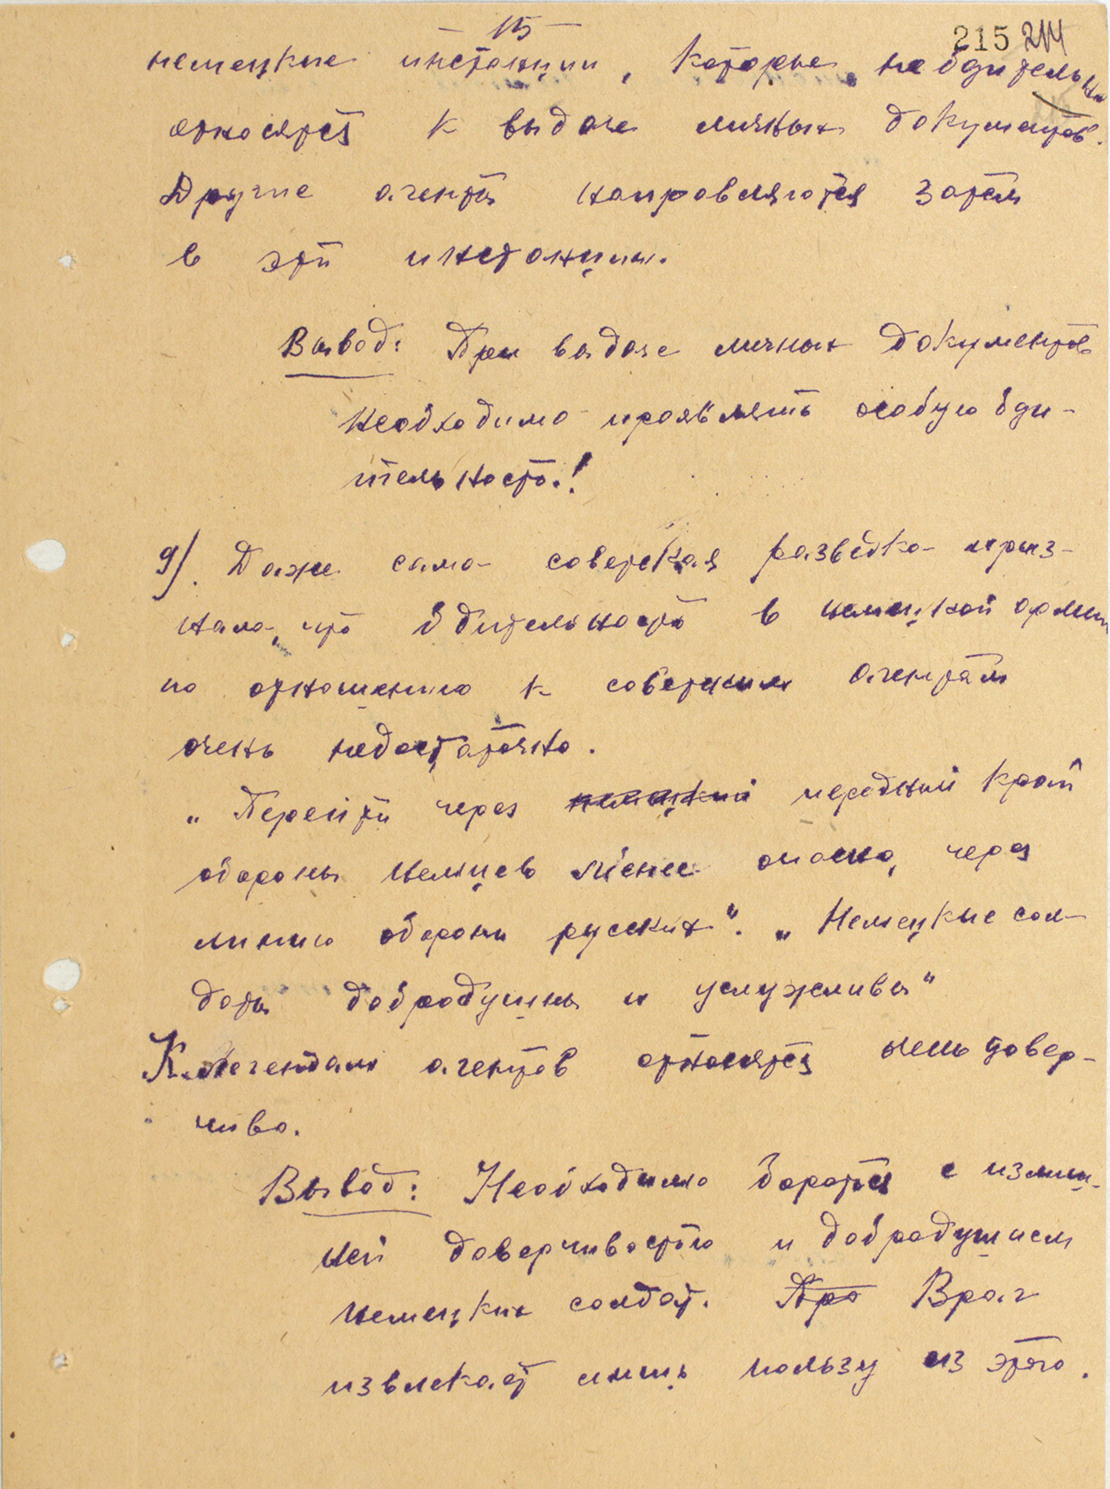 — 15 —
215 214
немецкие инстанции, которые не бдительно
относятся к выдаче личных документов.
Другие агенты направляются затем
в эти инстанции.
Вывод: При выдаче личных документов
необходимо проявлять особую бди-
тельность!
9/. Даже сама советская разведка приз-
нала, что бдительность в немецкой армии
по отношению к советским агентам
очень недостаточно.
„Перейти через немецкий передний край
обороны немцев менее опасно, через
линию обороны русских“. „Немецкие сол-
даты добродушны и услужливы“
К легендам агентов относятся довер-
чиво.
Вывод: Необходимо бороться с излиш-
ней доверчивостью и добродушием
немецких солдат. Про Враг
извлекает лишь пользу из этого.